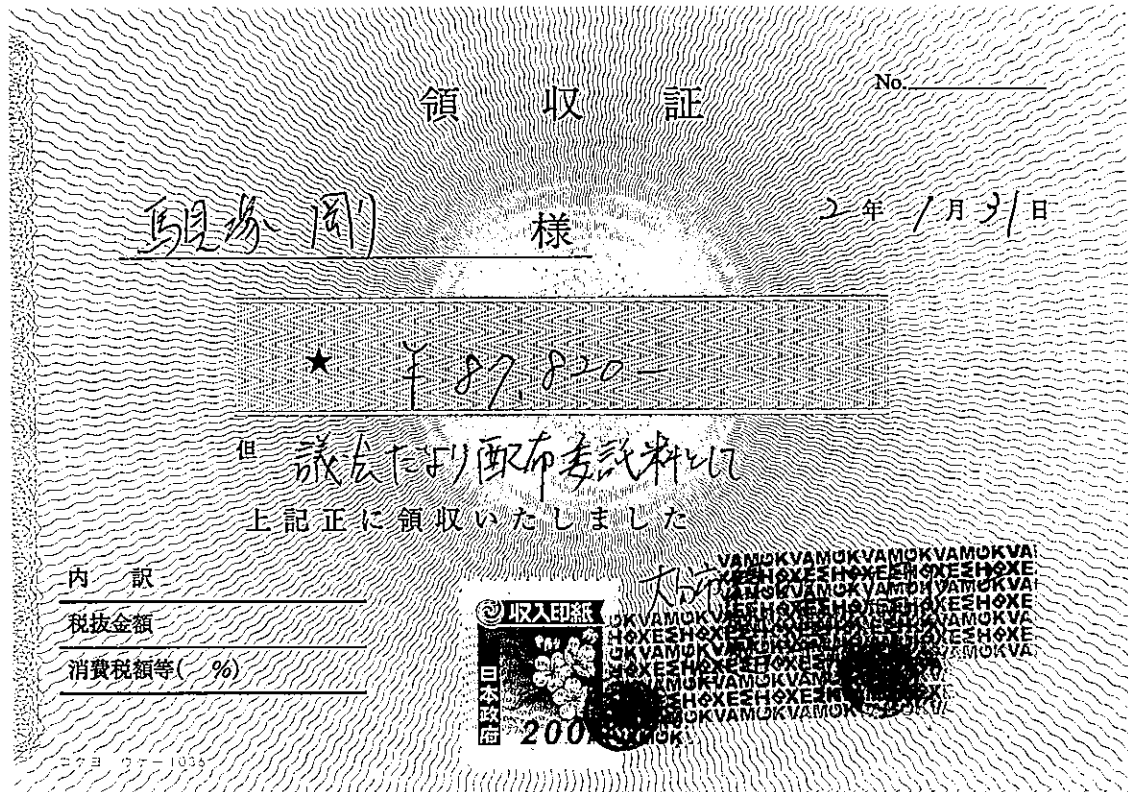 領収証
No.
馬見塚 剛 様
2年 1月31日
★ ¥87,820-
但 議会だより配布委託料として
上記正に領収いたしました
内訳
税抜金額
消費税額等( %)
収入印紙
日本政府
200
コクヨ ウケー1036